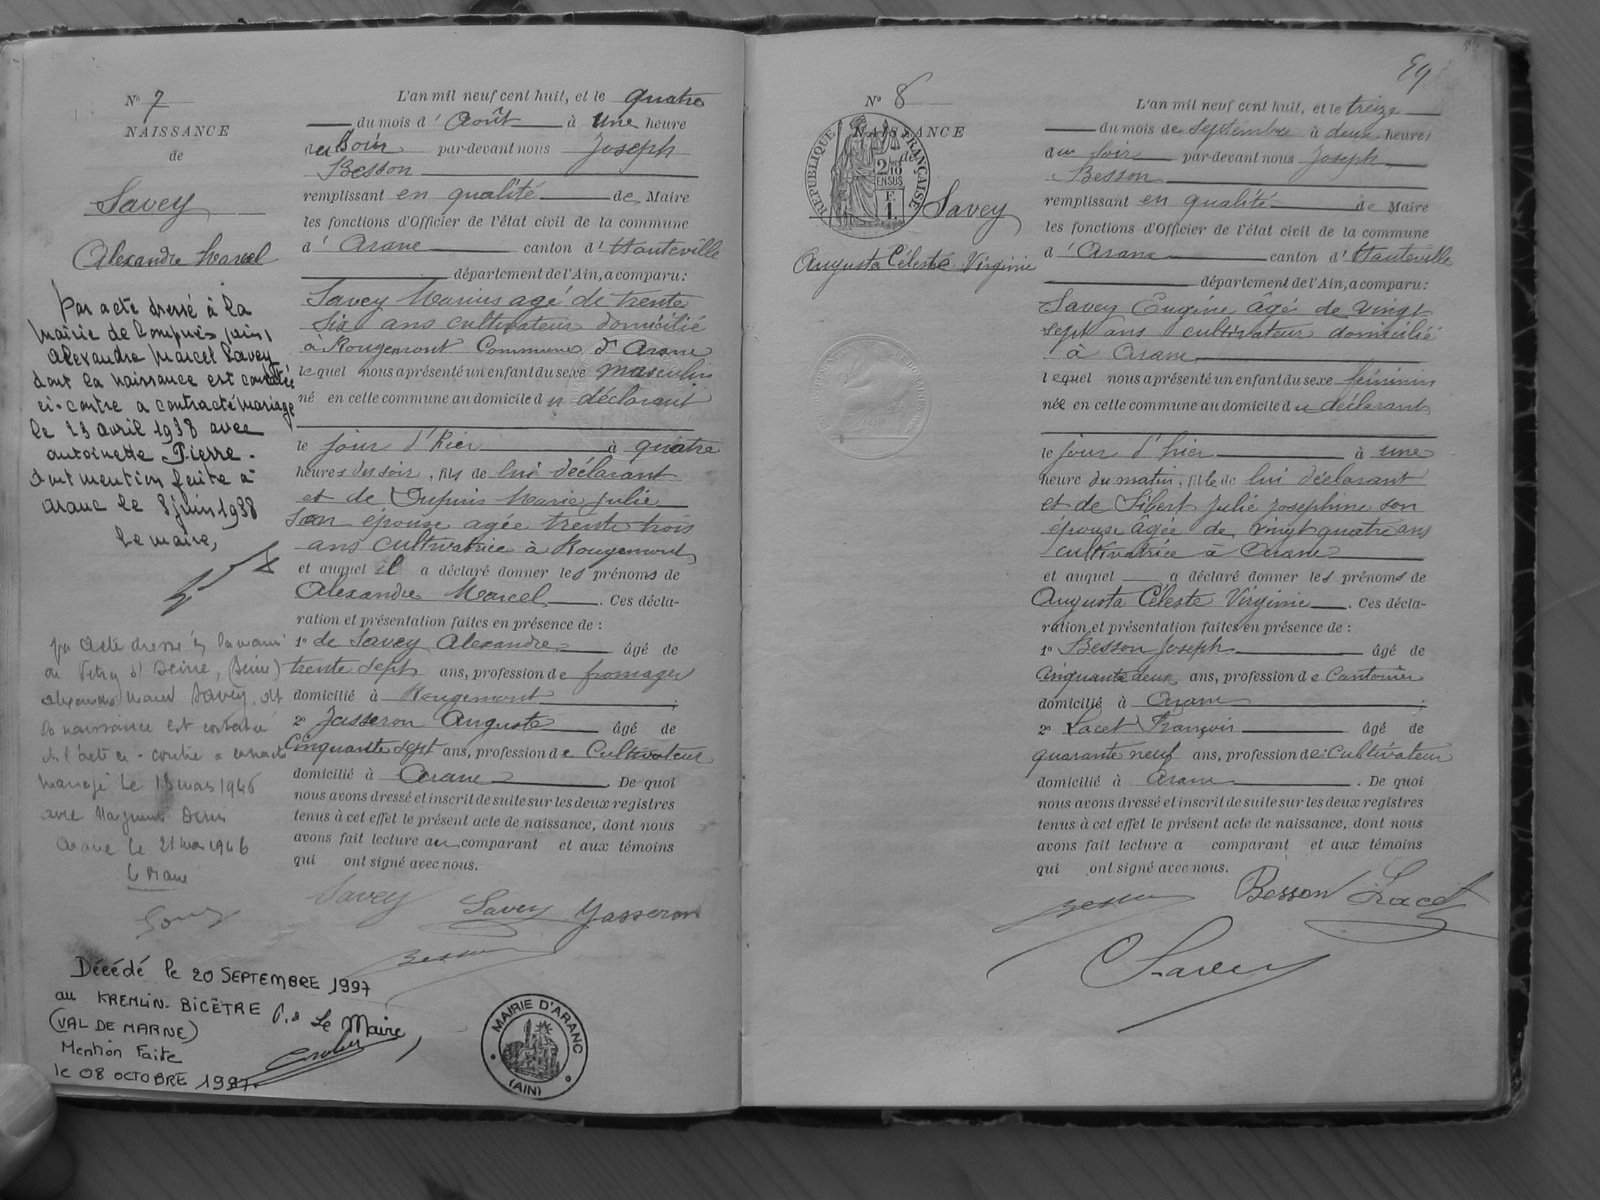 N° 7
NAISSANCE
de
Savey
Alexandre Marcel
Par acte dressé à la
mairie de
Alexandre Marcel Savey
dont la naissance est constatée
ci-contre a contracté mariage
le 23 avril 1938 avec
Antoinette Pierre.
Dont mention faite à
Aranc le 8 juin 1938
Le maire,
par acte dressé à la mairie
de Vitry s/ Seine, (Seine)
Alexandre Marcel Savey, dont
la naissance est constatée
en l'acte ci-contre a contracté
mariage le 16 mars 1946
avec
Aranc le 21 mai 1946
Le Maire
Décédé le 20 SEPTEMBRE 1997
au KREMLIN-BICÊTRE
(VAL DE MARNE)
Mention Faite
le 08 OCTOBRE 1997.
Le Maire,
L'an mil neuf cent huit, et le quatre
du mois d' Août à une heure
du Soir par-devant nous Joseph
Besson
remplissant en qualité de Maire
les fonctions d'Officier de l'état civil de la commune
d' Aranc canton d' Hauteville
département de l'Ain, a comparu:
Savey Marius agé de trente
six ans cultivateur domicilié
à Rougemont Commune d'Aranc
lequel nous a présenté un enfant du sexe masculin
né en cette commune au domicile du déclarant
le jour d'hier à quatre
heures du soir, fils de lui déclarant
et de Dupuis Marie Julie
son épouse agée trente trois
ans cultivatrice à Rougemont
et auquel il a déclaré donner les prénoms de
Alexandre Marcel. Ces décla-
ration et présentation faites en présence de :
1° de Savey Alexandre âgé de
trente sept ans, profession de fromager
domicilié à Rougemont ;
2° Jasseron Auguste âgé de
Cinquante sept ans, profession de Cultivateur
domicilié à Aranc. De quoi
nous avons dressé et inscrit de suite sur les deux registres
tenus à cet effet le présent acte de naissance, dont nous
avons fait lecture au comparant et aux témoins
qui ont signé avec nous.
Savey Savey Jasseron
Besson
MAIRIE D'ARANC
(AIN)
59
N° 8
NAISSANCE
de
RÉPUBLIQUE FRANÇAISE
2/10
EN SUS
F.
1.
Savey
Augusta Céleste Virginie
L'an mil neuf cent huit, et le treize
du mois de septembre à deux heures
du soir par-devant nous Joseph
Besson
remplissant en qualité de Maire
les fonctions d'Officier de l'état civil de la commune
d' Aranc canton d' Hauteville
département de l'Ain, a comparu:
Savey Eugène âgé de vingt
sept ans cultivateur domicilié
à Aranc
lequel nous a présenté un enfant du sexe féminin
née en cette commune au domicile du déclarant
le jour d'hier à une
heure du matin, fille de lui déclarant
et de Sibert Julie Josephine son
épouse âgée de vingt quatre ans
cultivatrice à Aranc
et auquel a déclaré donner les prénoms de
Augusta Céleste Virginie. Ces décla-
ration et présentation faites en présence de :
1° Besson Joseph âgé de
Cinquante deux ans, profession de Cantonier
domicilié à Aranc ;
2° Lacet François âgé de
quarante neuf ans, profession de Cultivateur
domicilié à Aranc. De quoi
nous avons dressé et inscrit de suite sur les deux registres
tenus à cet effet le présent acte de naissance, dont nous
avons fait lecture a comparant et aux témoins
qui ont signé avec nous.
Besson Besson Lacet
Savey